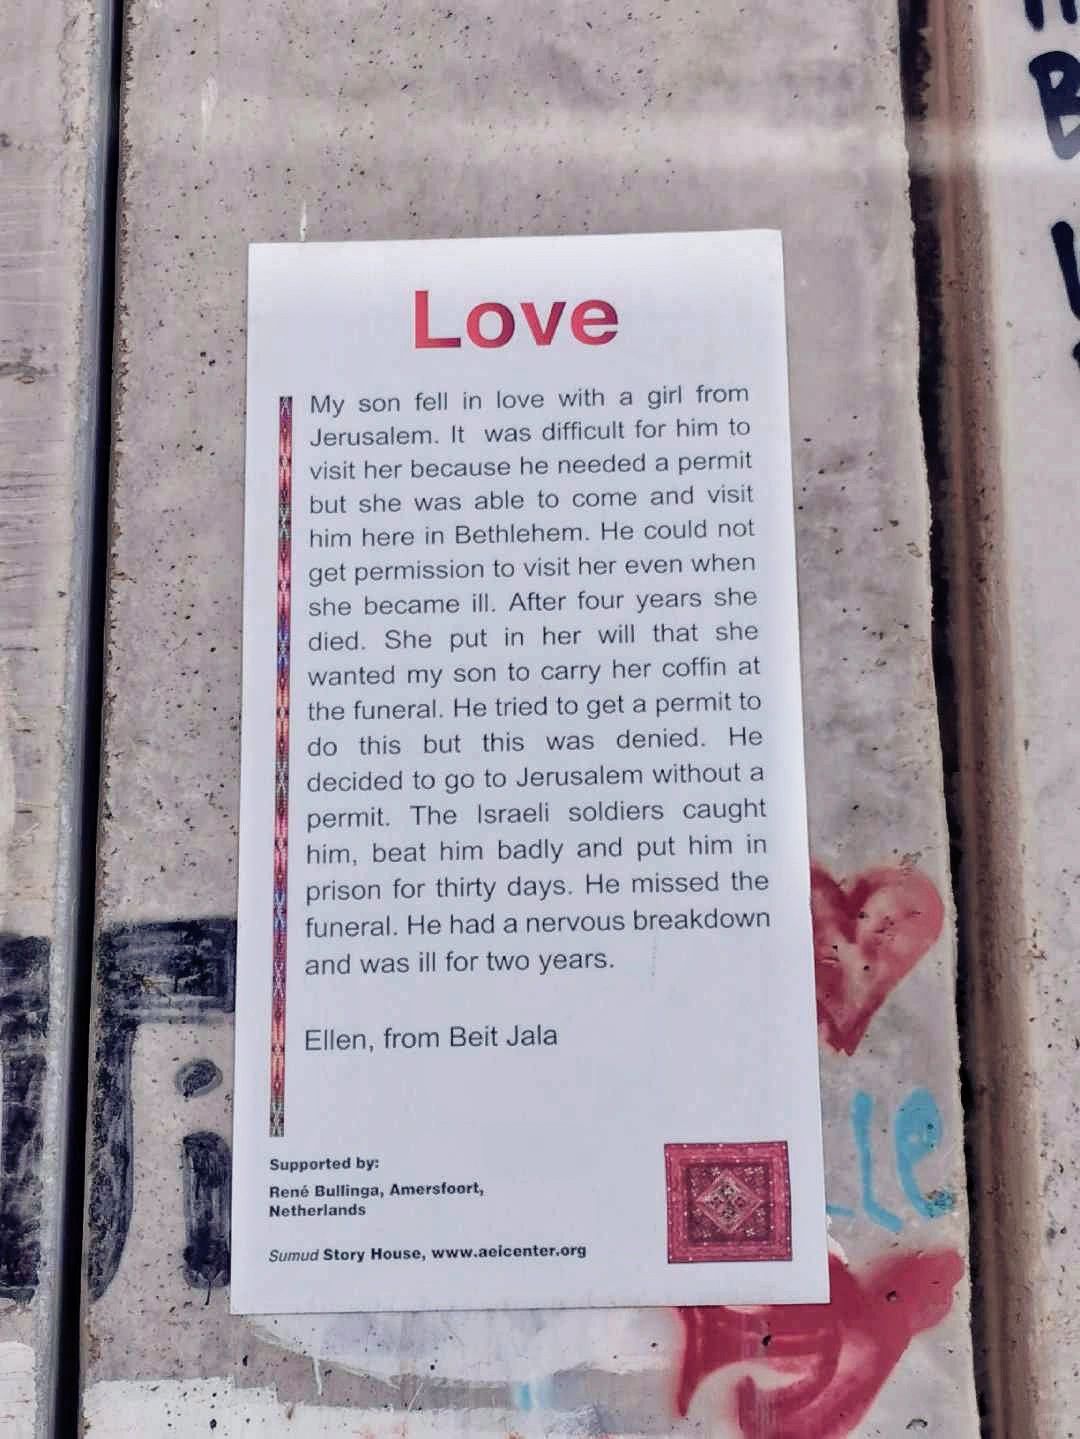 Love
My son fell in love with a girl from
Jerusalem. It was difficult for him to
visit her because he needed a permit
but she was able to come and visit
him here in Bethlehem. He could not
get permission to visit her even when
she became ill. After four years she
died. She put in her will that she
wanted my son to carry her coffin at
the funeral. He tried to get a permit to
do this but this was denied. He
decided to go to Jerusalem without a
permit. The Israeli soldiers caught
him, beat him badly and put him in
prison for thirty days. He missed the
funeral. He had a nervous breakdown
and was ill for two years.
Ellen, from Beit Jala
Supported by:
René Bullinga, Amersfoort,
Netherlands
Sumud Story House, www.aeicenter.org